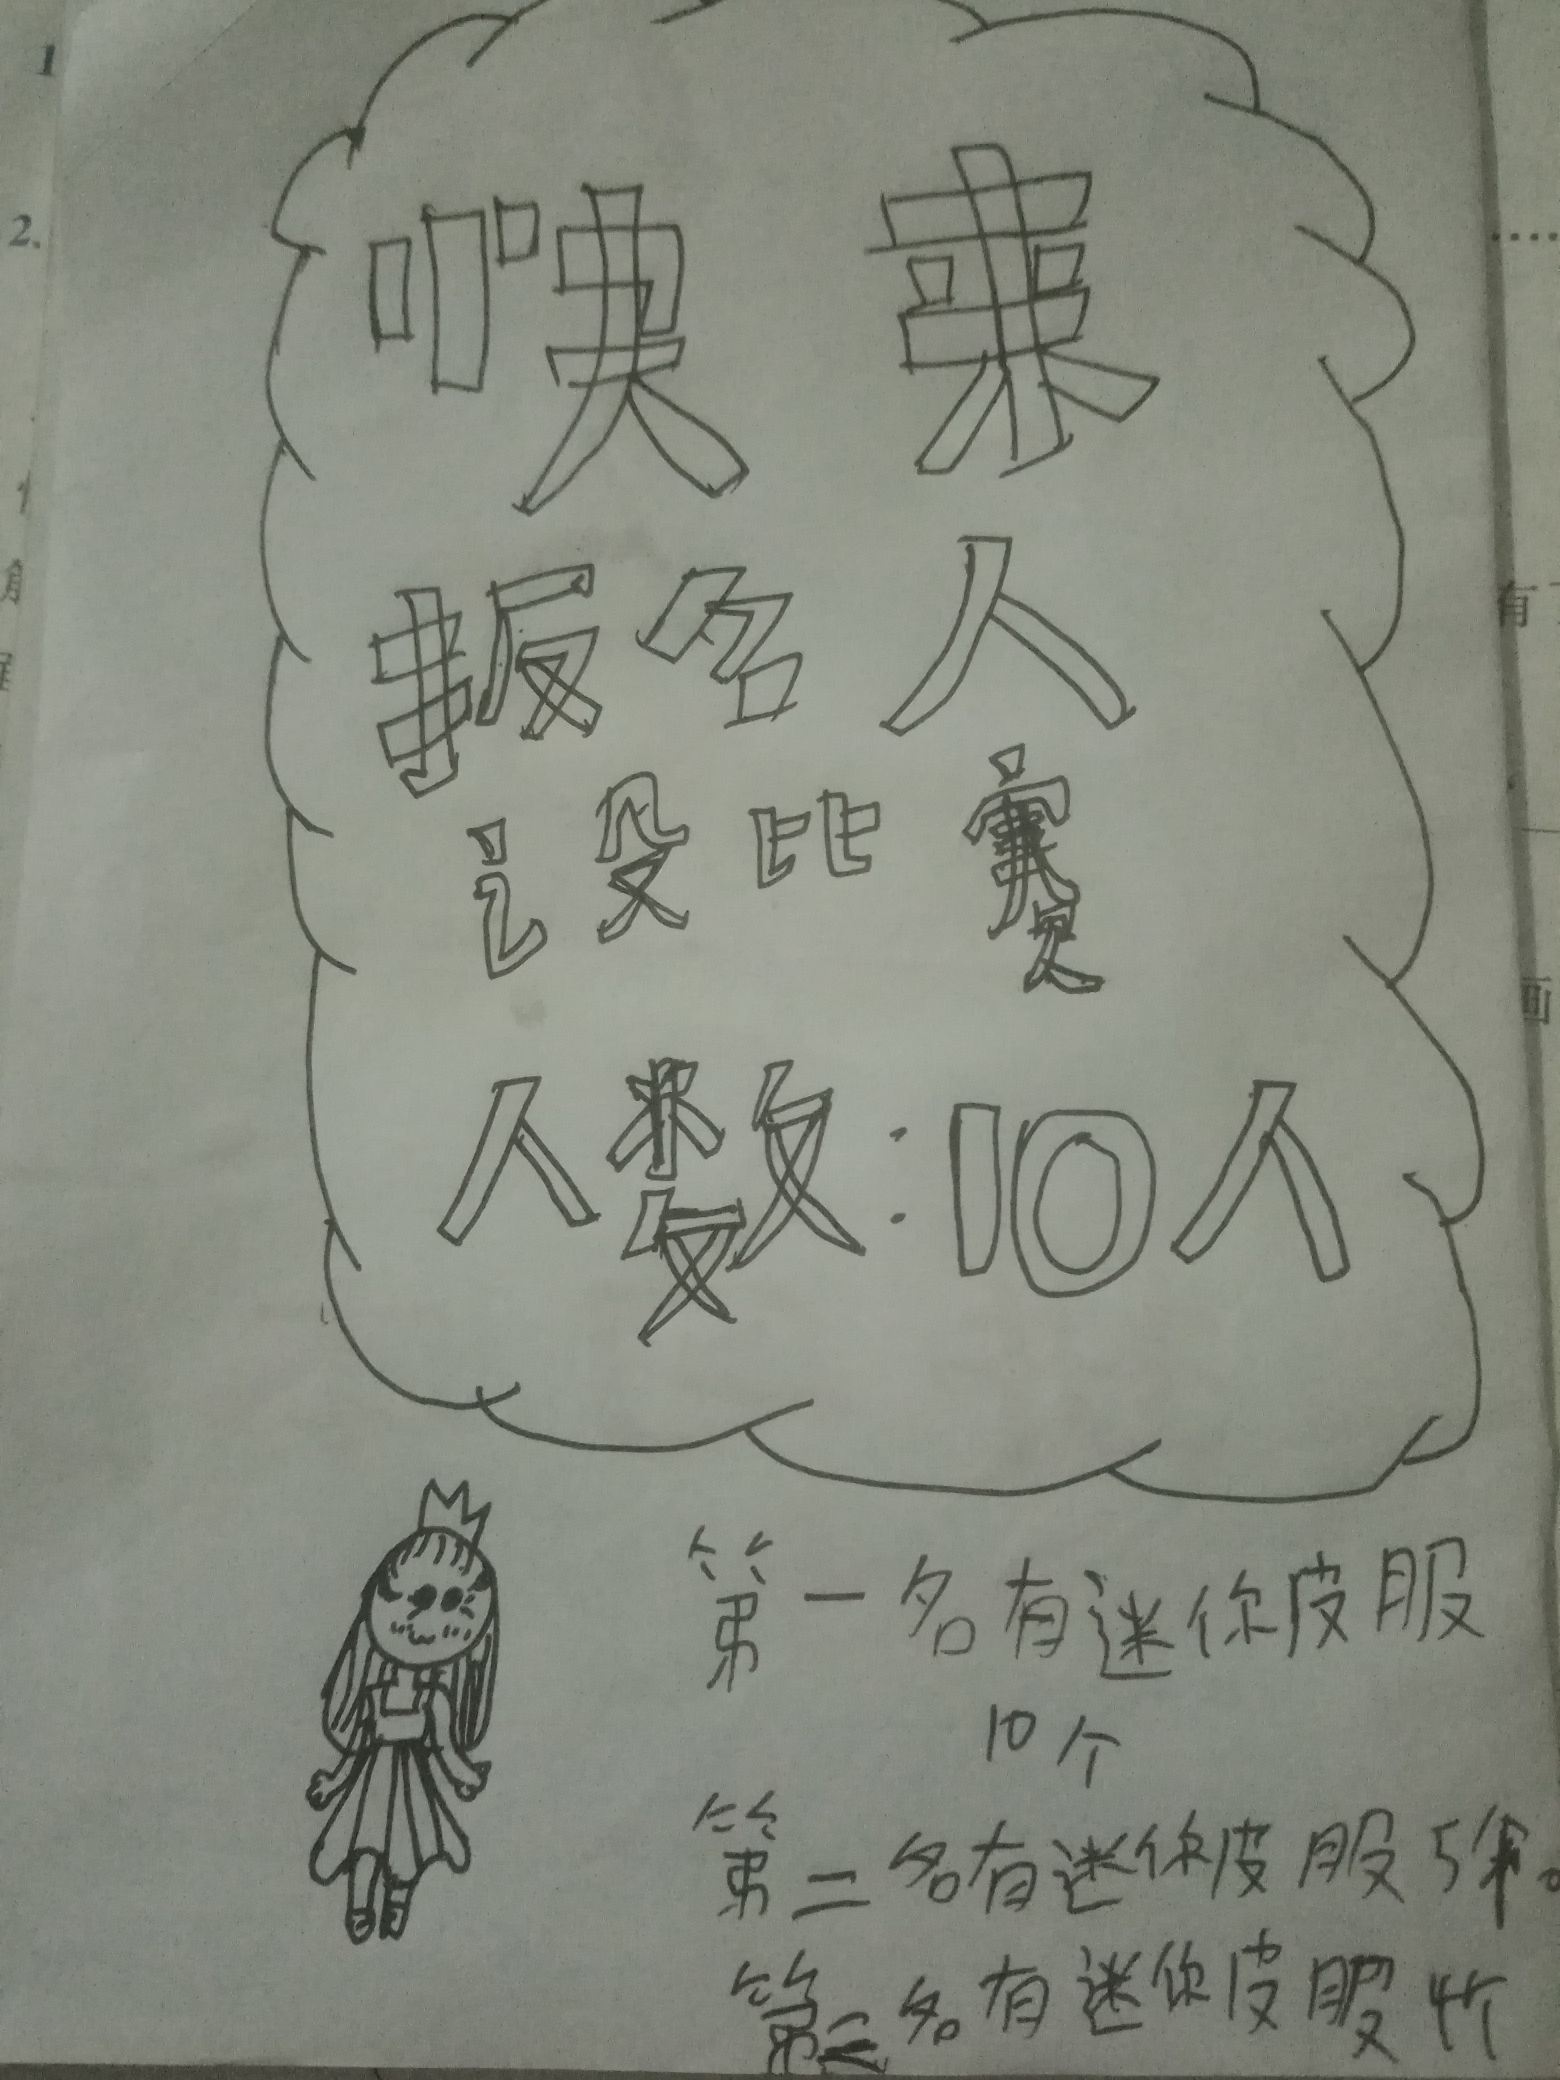 快来
报名人
设比赛
人数:10人
第一名有迷你皮服
10个
第二名有迷你皮服5个。
第三名有迷你皮服4个
1
2.
有
画